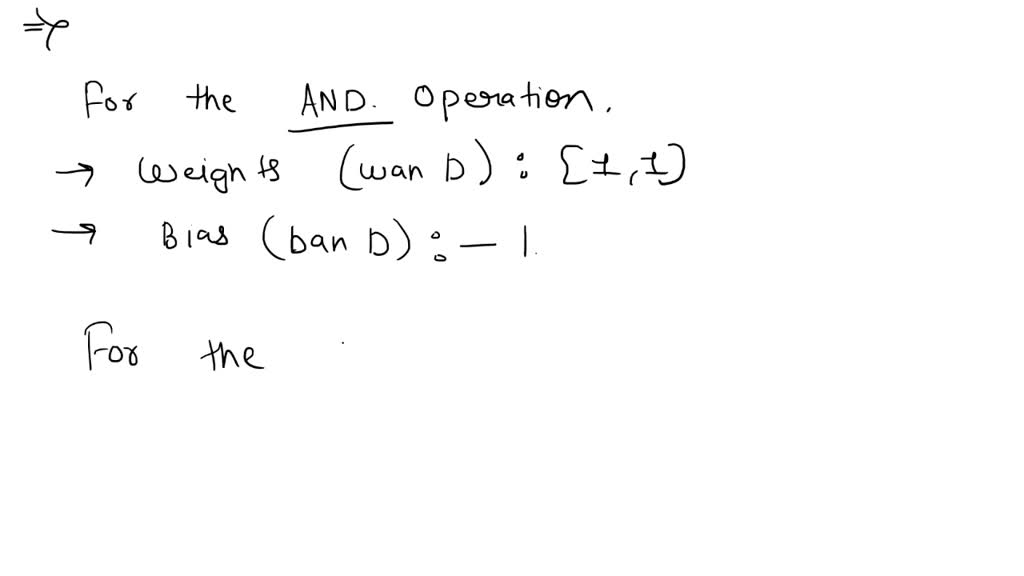 ⇒
For the AND. Operation.
→ Weights (wan D) : [1,1]
→ Bias (ban D) : — 1.
For the